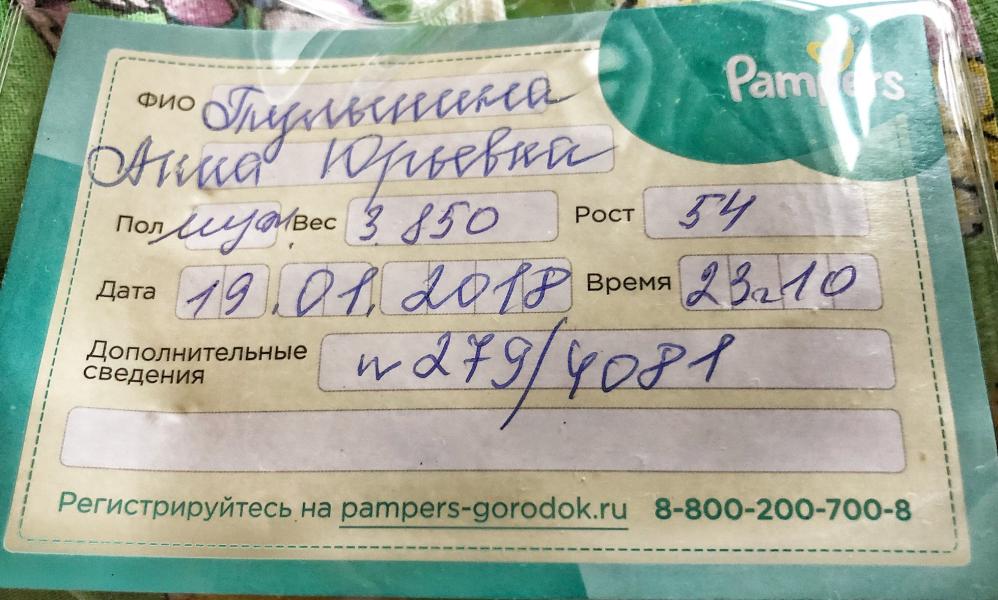 Pampers
ФИО
Анна Юрьевна
Пол муж. Вес 3 850 Рост 54
Дата 19.01.2018 Время 23ч10
Дополнительные
сведения
n 279/4081
Регистрируйтесь на pampers-gorodok.ru 8-800-200-700-8